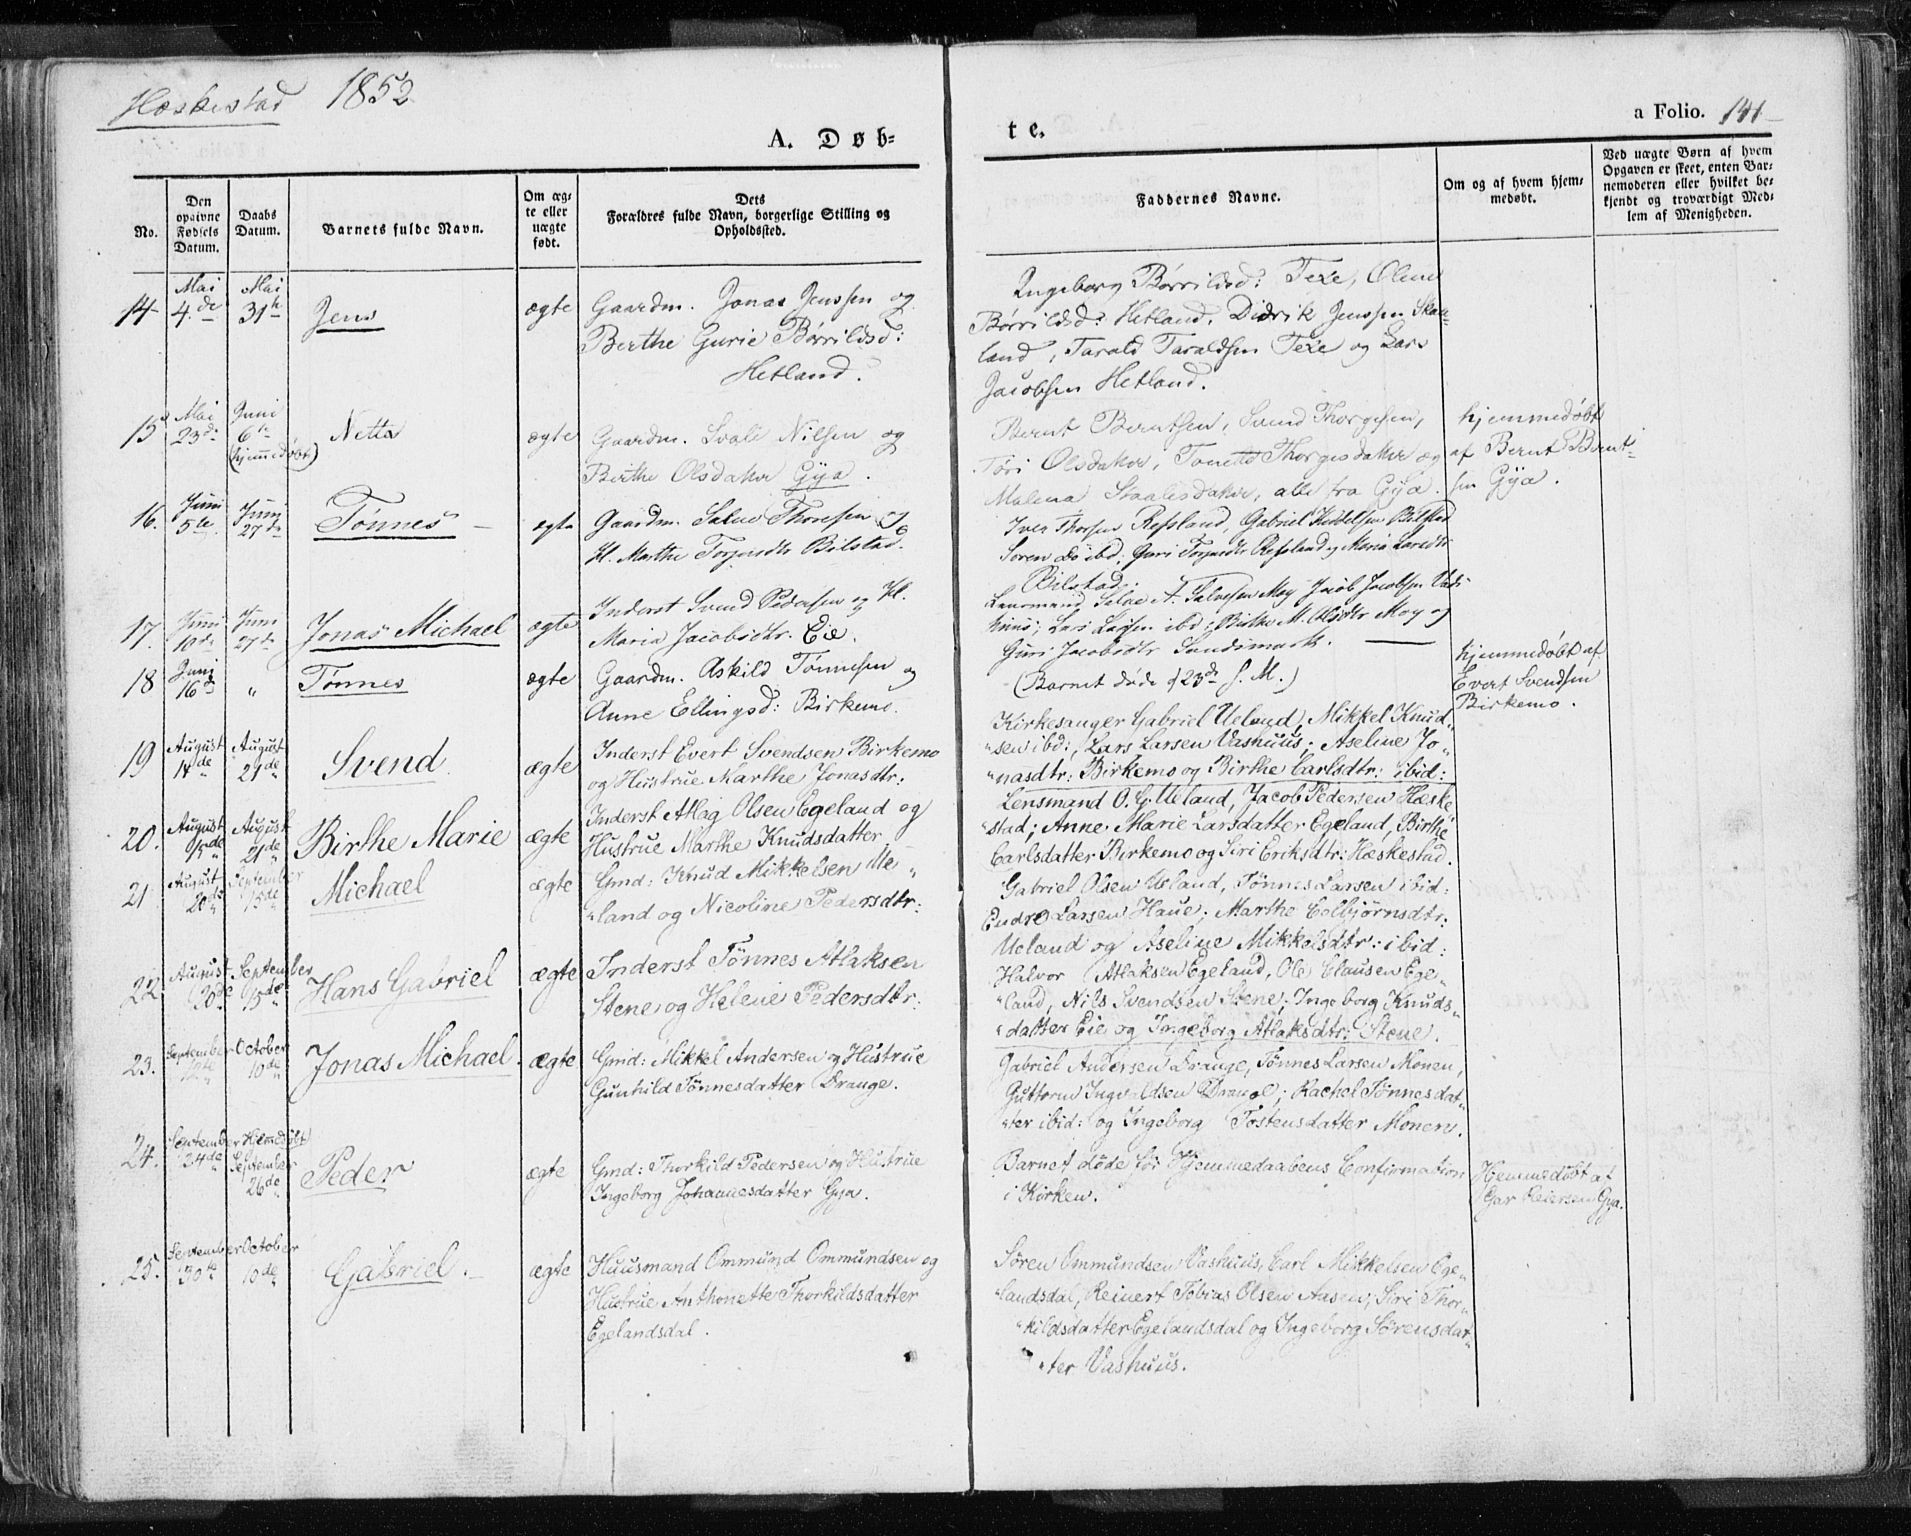 Heskestad 1852
a Folio. 141
A. Døb-
te.
No.
Den opgivne Fødsels Datum.
Daabs Datum.
Barnets fulde Navn.
Om ægte eller uægte født.
Dets Forældres fulde Navn, borgerlige Stilling og Opholdssted.
Faddernes Navne.
Om og af hvem hjemmedøbt.
Ved uægte Børn af hvem Opgaven er skeet, enten Barnemoderen eller hvilket bekjendt og troværdigt Medlem af Menigheden.
14 Mai 4de Mai 31te Jens ægte
Gaardm. Jonas Jenssen og
Berthe Gurie Børrildsd:
Hetland.
Ingeborg Børrildsd: Texe, Olene
Børrildsd: Hetland, Didrik Jenssen Skaa-
land, Tarald Taraldsen Texe og Lars
Jacobsen Hetland.
15 Mai 23de Juni 6te (hjemmedøbt) Netta ægte
Gaardm. Svale Nilsen og
Birthe Olsdater Gya.
Bernt Berntsen, Svend Thorgesen,
Tori Olsdater, Tonette Thorgesdatter og
Malena Staalesdater, alle fra Gya.
hjemmedøbt
af Bernt Bernt-
sen Gya.
16. Juni 5te Juni 27de Tønnes ægte
Gaardm. Salve Thoresen og
H. Marthe Torjersdtr Bilstad.
Iver Thorsen Refsland, Gabriel Kiddelsen Bilstad
Soren do ibd; Guri Torjersdtr Refsland og Maria Larsdtr
Bilstad.
17. Juni 10de Juni 27de Jonas Michael ægte
Inderst Svend Pedersen og H.
Maria Jacobsdtr. Eie.
Lensmand Salve A. Salvesen Moy Jacob Jacobsen Vas-
huus; Lars Larsen ibd; Birthe M. Olsdtr Moy og
Guri Jacobsdtr Sandsmark.
18 Juni 16de " Tønnes ægte
Gaardm. Askild Tønnesen og
Anne Ellingsd: Birkemo.
(Barnet døde d 23de s. M.)
hjemmedøbt af
Evert Svendsen
Birkemo.
19 August 14de August 21de Svend ægte
Inderst Evert Svendsen Birkemo
og Hustrue Marthe Jonasdtr:
Kirkesanger Gabriel Ueland, Mikkel Knud-
sen ibd; Lars Larsen Vashuus; Aseline Jo-
nasdtr: Birkemo og Birthe Carlsdtr: ibid:
20. August 15de August 21de Birthe Marie ægte
Inderst Atlag Olsen Egeland og
Hustrue Marthe Knudsdatter
Lensmand O. G. Ueland, Jacob Pedersen Hæske-
stad; Anne Marie Larsdatter Egeland, Birthe
Carlsdatter Birkemo og Siri Eriksdtr: Hæskestad.
21. August 20de September 15de Michael ægte
Gmd: Knud Mikkelsen Ue-
land og Nicoline Pedersdtr:
Gabriel Olsen Ueland, Tønnes Larsen ibid:
Endre Larsen Haue; Marthe Colbjørnsdtr:
Ueland og Aseline Mikkelsdtr: ibid:
22. August 20de September 15de Hans Gabriel ægte
Inderst Tønnes Atlaksen
Stene og Helene Pedersdtr:
Halvor Atlaksen Egeland, Ole Clausen Ege-
land, Nils Svendsen Stene; Ingeborg Knuds-
datter Eie og Ingeborg Atlaksdtr: Stene.
23. September 12te October 10de Jonas Michael. ægte
Gmd: Mikkel Andersen og Hustrue
Gunhild Tønnesdatter Drange.
Gabriel Andersen Drange, Tønnes Larsen Monen,
Guttorm Ingvaldsen Drange; Rachel Tønnesdat-
ter ibid: og Ingeborg Tostensdatter Monen.
24. September 24de Hjemmedøbt September 26de Peder ægte
Gmd: Thorkild Pedersen og Hustrue
Ingeborg Johannesdatter Gya.
Barnet døde før Hjemmedaabens Confirmation
i Kirken.
Hjemmedøbt af
Gar Reiersen Gya.
25. September 30te October 10de Gabriel. ægte
Huusmand Ommund Ommundsen og
Hustrue Anthonette Thorkildsdatter
Egelandsdal.
Søren Ommundsen Vashuus, Carl Mikkelsen Ege-
landsdal, Reinert Tobias Olsen Aasen; Siri Thor-
kildsdatter Egelandsdal og Ingeborg Sørensdat-
ter Vashuus.